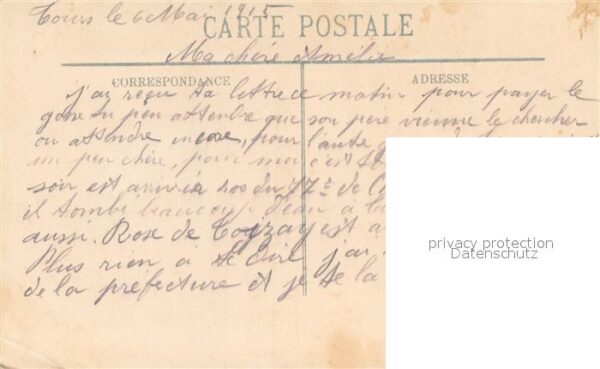 Tours le 6 Mai 1915
CARTE POSTALE
Ma chère Amélie
CORRESPONDANCE
ADRESSE
j'ai reçu ta lettre ce matin pour payer le
gosse tu peu attendre que son père vienne le chercher
ou attendre encore, pour l'autre
un peu chère, pour moi c'est
soir est arrivée 200 du 17e de
il tombe beaucoup d'eau à
aussi. Rose de est
Plus rien à te dire j'ai
de la préfecture et je te la
privacy protection
Datenschutz